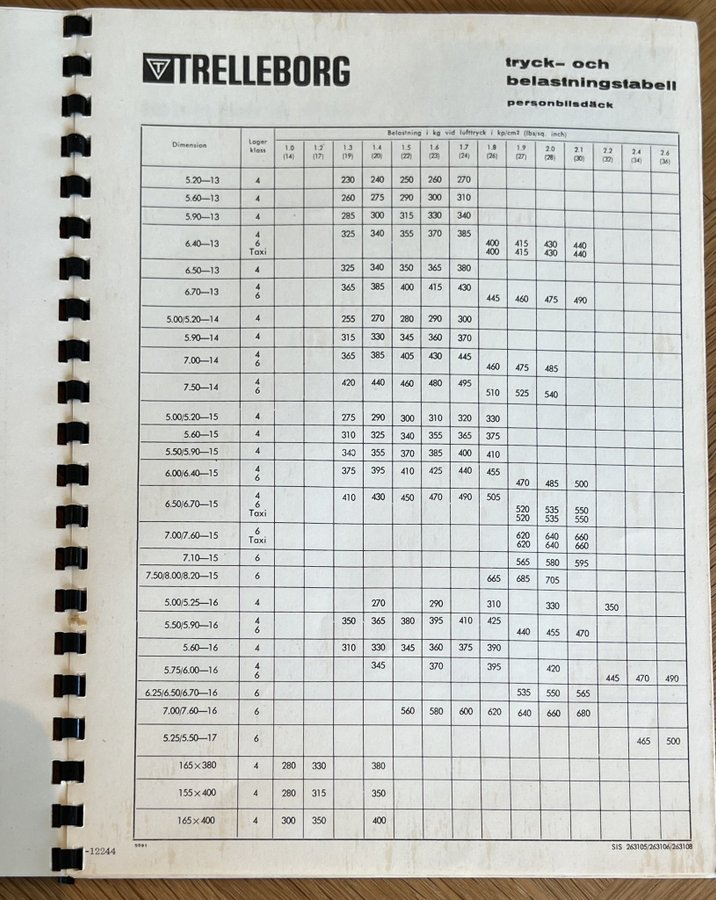 TRELLEBORG
tryck- och
belastningstabell
personbilsdäck
Dimension Lager klass Belastning i kg vid lufttryck i kp/cm² (lbs/sq. inch)
1.0 1.2 1.3 1.4 1.5 1.6 1.7 1.8 1.9 2.0 2.1 2.2 2.4 2.6
(14) (17) (19) (20) (22) (23) (24) (26) (27) (28) (30) (32) (34) (36)
5.20—13 4 230 240 250 260 270
5.60—13 4 260 275 290 300 310
5.90—13 4 285 300 315 330 340
6.40—13 4 325 340 355 370 385
6 400 415 430 440
Taxi 400 415 430 440
6.50—13 4 325 340 350 365 380
6.70—13 4 365 385 400 415 430
6 445 460 475 490
5.00/5.20—14 4 255 270 280 290 300
5.90—14 4 315 330 345 360 370
7.00—14 4 365 385 405 430 445
6 460 475 485
7.50—14 4 420 440 460 480 495
6 510 525 540
5.00/5.20—15 4 275 290 300 310 320 330
5.60—15 4 310 325 340 355 365 375
5.50/5.90—15 4 340 355 370 385 400 410
6.00/6.40—15 4 375 395 410 425 440 455
6 470 485 500
6.50/6.70—15 4 410 430 450 470 490 505
6 520 535 550
Taxi 520 535 550
7.00/7.60—15 6 620 640 660
Taxi 620 640 660
7.10—15 6 565 580 595
7.50/8.00/8.20—15 6 665 685 705
5.00/5.25—16 4 270 290 310 330 350
5.50/5.90—16 4 350 365 380 395 410 425
6 440 455 470
5.60—16 4 310 330 345 360 375 390
5.75/6.00—16 4 345 370 395 420
6 445 470 490
6.25/6.50/6.70—16 6 535 550 565
7.00/7.60—16 6 560 580 600 620 640 660 680
5.25/5.50—17 6 465 500
165×380 4 280 330 380
155×400 4 280 315 350
165×400 4 300 350 400
-12244
SIS 263105/263106/263108